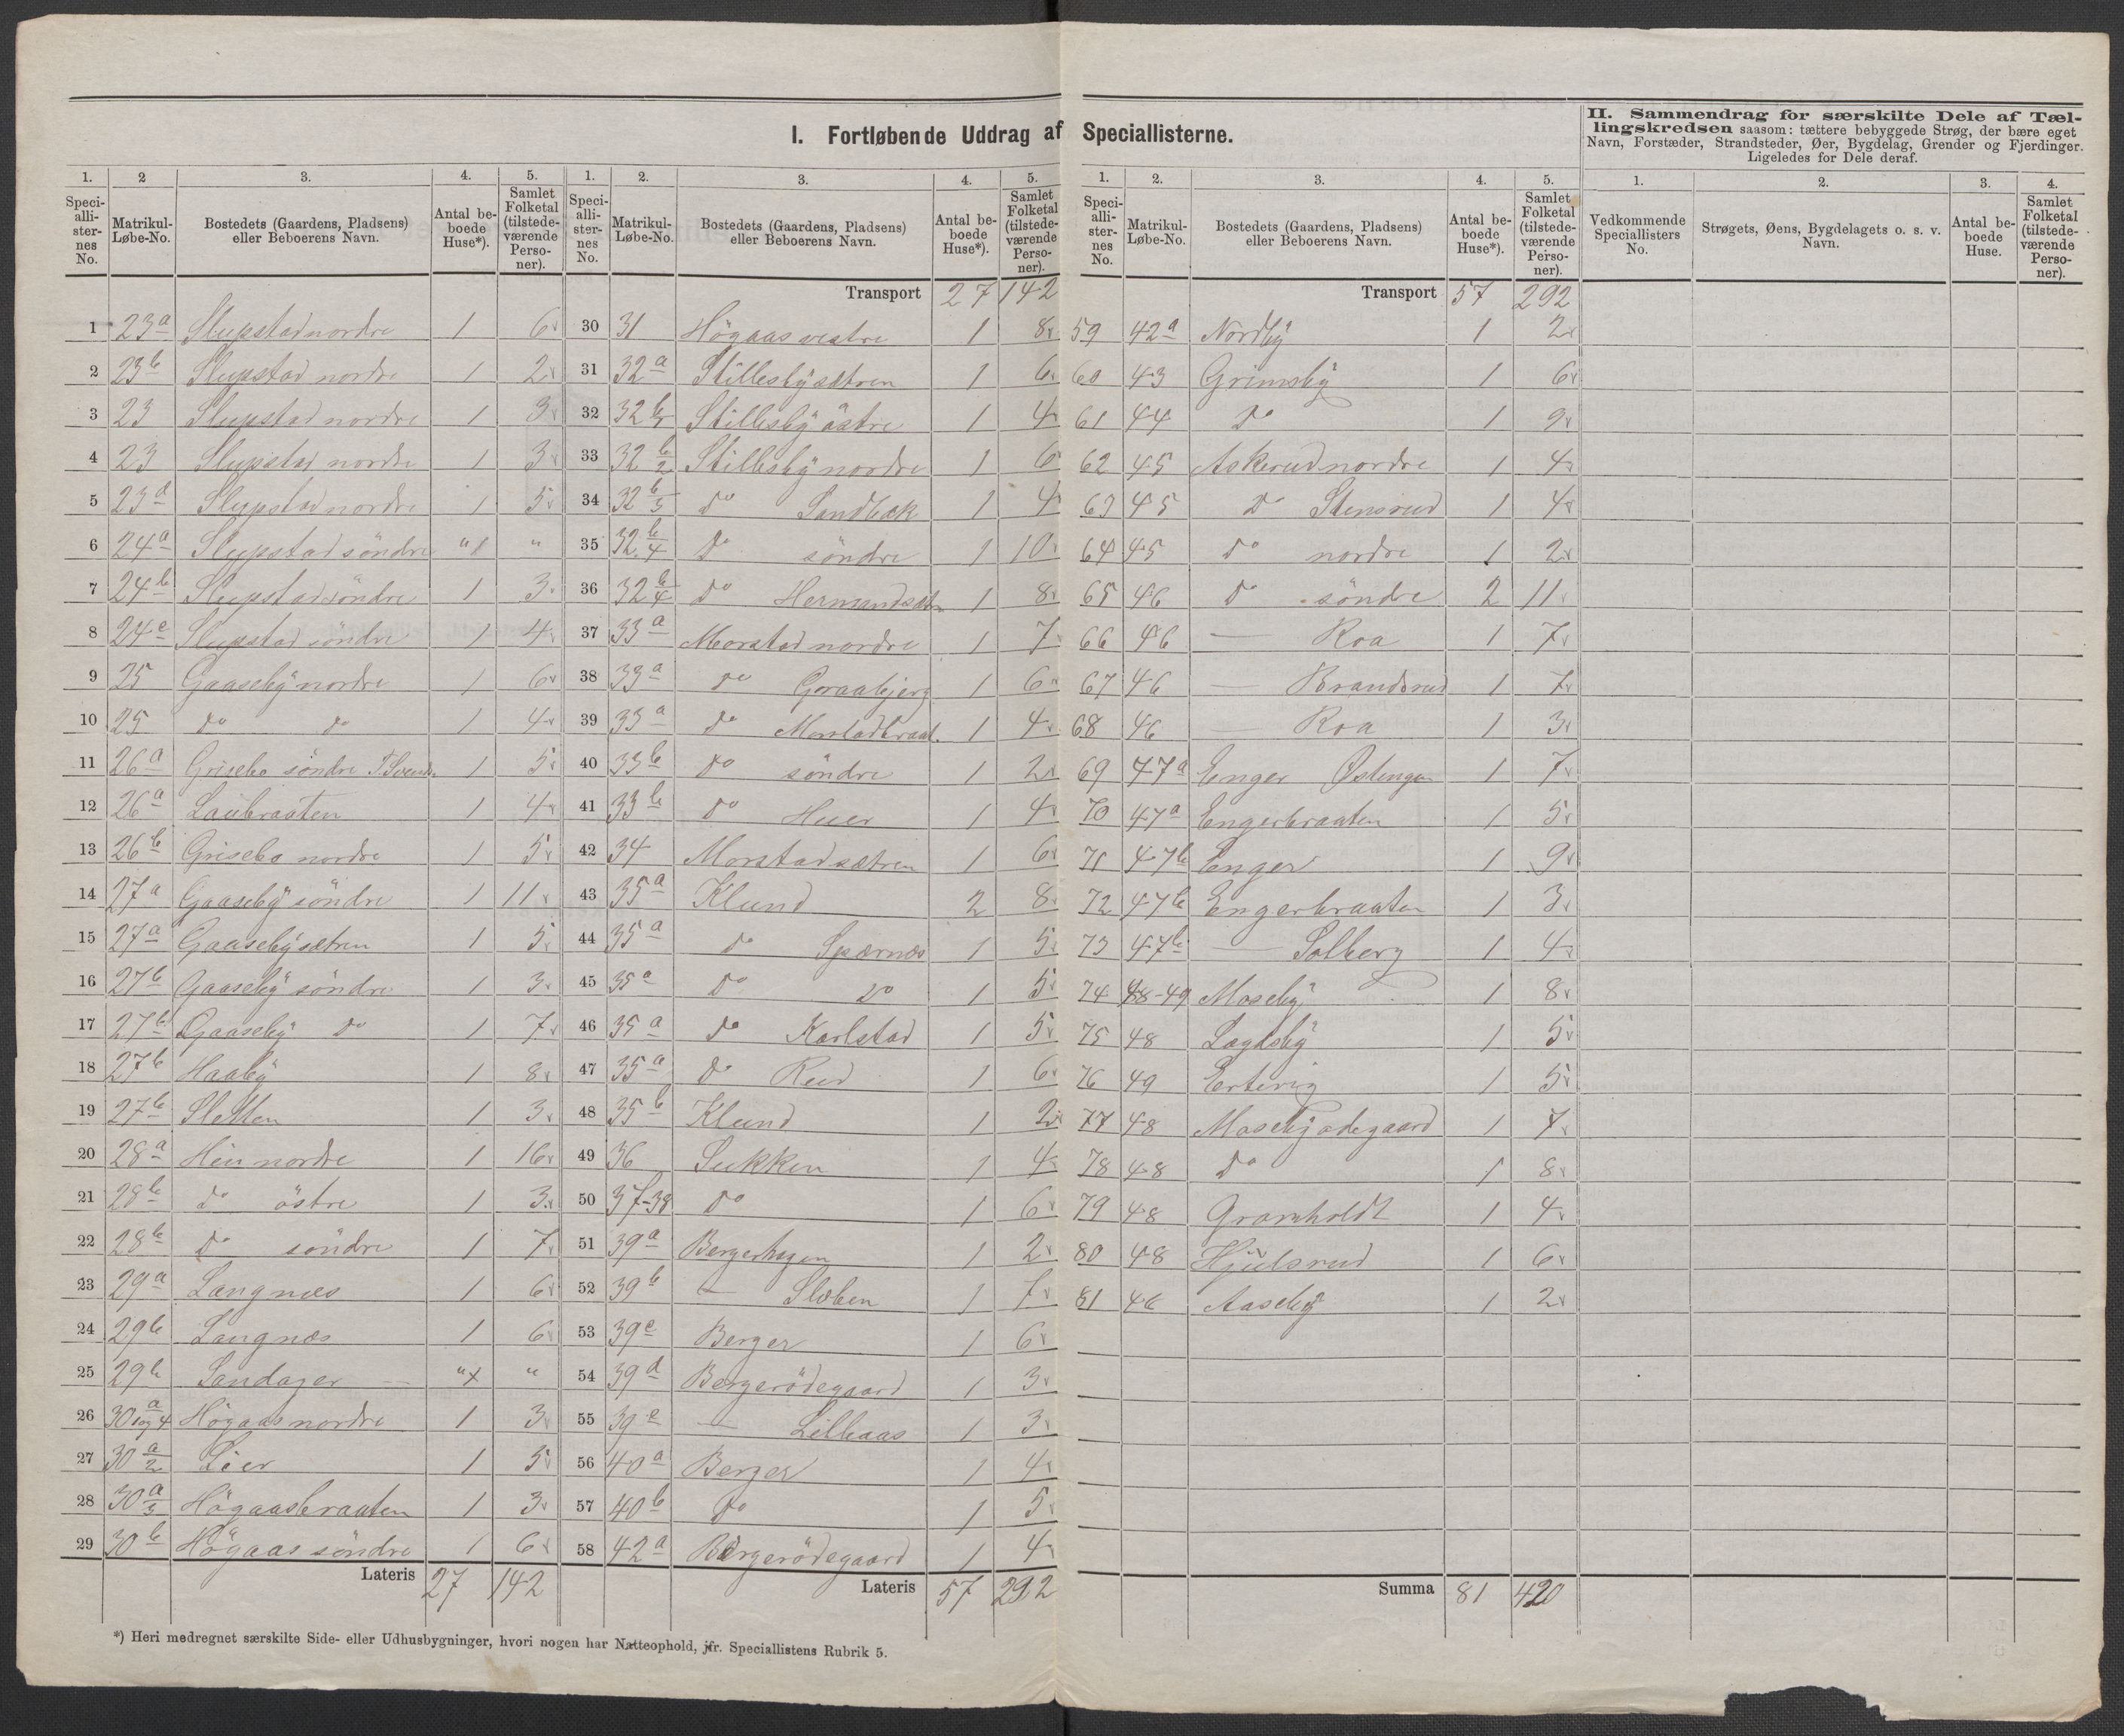 I. Fortløbende Uddrag af Speciallisterne.
II. Sammendrag for særskilte Dele af Tæl-
lingskredsen saasom: tættere bebyggede Strøg, der bære eget
Navn, Forstæder, Strandsteder, Øer, Bygdelag, Grender og Fjerdinger.
Ligeledes for Dele deraf.
1. 2 3. 4. 5.
Speci-alli-ster-nes No. Matrikul-Løbe-No. Bostedets (Gaardens, Pladsens) eller Beboerens Navn. Antal be-boede Huse*). Samlet Folketal (tilstede-værende Perso-ner).
1 23a Slupstad nordre 1 6
2 23b Slupstad nordre 1 2
3 23 Slupstad nordre 1 3
4 23 Slupstad nordre 1 3
5 23d Slupstad nordre 1 5
6 24a Slupstad söndre " "
7 24b Slupstad söndre 1 3
8 24c Slupstad söndre 1 4
9 25 Gaaseby nordre 1 6
10 25 do do 1 4
11 26a Grisebo söndre 1 5
12 26a Laubraaten 1 4
13 26b Grisebo nordre 1 5
14 27a Gaaseby söndre 1 11
15 27a Gaasebysætren 1 5
16 27b Gaaseby söndre 1 3
17 27b Gaaseby do 1 7
18 27b Haaby 1 8
19 27b Sletten 1 3
20 28a Hen nordre 1 16
21 28b do östre 1 3
22 28b do söndre 1 7
23 29a Langnæs 1 6
24 29b Langnæs 1 6
25 29b Sandager " "
26 30 a 1 og 4 Högaas nordre 1 3
27 30 a 2 Lier 1 5
28 30 a 3 Högaasbraaten 1 3
29 30b Högaas söndre 1 6
Lateris 27 142
1. 2. 3. 4. 5.
Speci-alli-ster-nes No. Matrikul-Løbe-No. Bostedets (Gaardens, Pladsens) eller Beboerens Navn. Antal be-boede Huse*). Samlet Folketal (tilstede-værende Perso-ner).
Transport 27 142
30 31 Högaas vestre 1 8
31 32a Stillesbysætren 1 6
32 32 b Stillesby östre 1 4
33 32 b 2 Stillesby nordre 1 6
34 32 b 3 do Sandbæk 1 4
35 32 b 4 do söndre 1 10
36 32 b 4 do 1 8
37 33a Morstad nordre 1 7
38 33a do Graabjerg 1 6
39 33a do Morstadbraat. 1 4
40 33b do söndre 1 2
41 33b do Huer 1 4
42 34 Morstadsætren 1 6
43 35a Klund 2 8
44 35a do Spærnæs 1 5
45 35a do do 1 5
46 35a do Karlstad 1 5
47 35a do Rud 1 6
48 35b Klund 1 2
49 36 Sukken 1 4
50 37-38 do 1 6
51 39a Bergerhagen 1 2
52 39b — Sloben 1 7
53 39c Berger 1 6
54 39d Bergerödegaard 1 3
55 39e — Lilleaas 1 3
56 40a Berger 1 4
57 40b do 1 5
58 42a Bergerödegaard 1 4
Lateris 57 292
1. 2. 3. 4. 5.
Speci-alli-ster-nes No. Matrikul-Løbe-No. Bostedets (Gaardens, Pladsens) eller Beboerens Navn. Antal be-boede Huse*). Samlet Folketal (tilstede-værende Perso-ner).
Transport 57 292
59 42a Nordby 1 2
60 43 Grimsby 1 6
61 44 do 1 9
62 45 Askerud nordre 1 4
63 45 do Stensrud 1 4
64 45 do nordre 1 2
65 46 do söndre 2 11
66 46 — Roa 1 7
67 46 — Brandsrud 1 7
68 46 — Roa 1 3
69 47a Enger Østengen 1 7
70 47a Engerbraaten 1 5
71 47b Enger 1 9
72 47b Engerbraaten 1 3
73 47b — Solberg 1 4
74 48-49 Moseby 1 8
75 48 Lagdsby 1 5
76 49 Ertevig 1 5
77 48 Mosebyödegaard 1 7
78 48 do 1 8
79 48 Gramholdt 1 4
80 48 Hjulsrud 1 6
81 46 Aaseby 1 2
Summa 81 420
1. 2. 3. 4.
Vedkommende Speciallisters No. Strøgets, Øens, Bygdelagets o. s. v. Navn. Antal be-boede Huse. Samlet Folketal (tilstede-værende Perso-ner).
*) Heri medregnet særskilte Side- eller Udhusbygninger, hvori nogen har Natteophold, jfr. Speciallistens Rubrik 5.